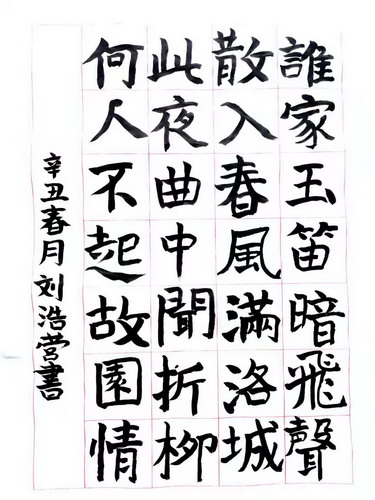 誰家玉笛暗飛聲
散入春風滿洛城
此夜曲中聞折柳
何人不起故園情
辛丑春月刘浩营書